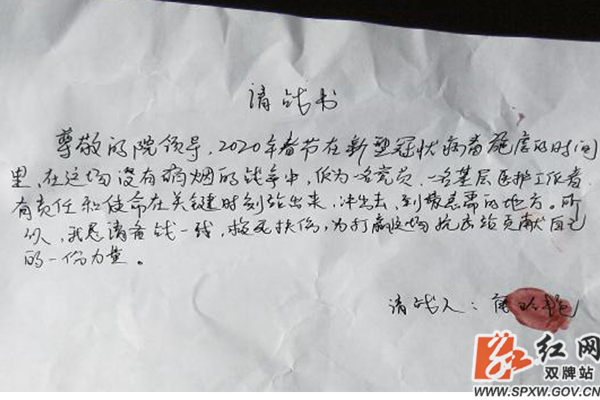 请战书
尊敬的院领导，2020年春节在新型冠状病毒肆虐的时间
里，在这场没有硝烟的战争中，作为一名党员，一名基层医护工作者
有责任和使命在关键时刻站出来，冲出去，到最急需的地方。所
以，我恳请奋战一线，救死扶伤，为打赢这场抗疫战贡献自己
的一份力量。
请战人：
红网
双牌站
WWW.SPXW.GOV.CN